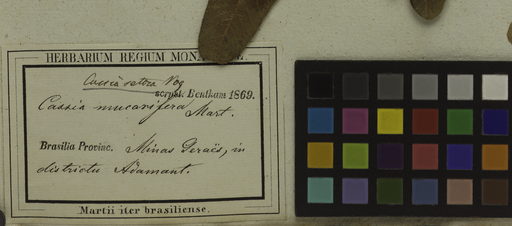 HERBARIUM REGIUM
Cassia setosa Vog
scrpsit. Bentham 1869.
Cassia mucronifera Mart.
Brasilia Provinc. Minas Geraës, in
districtu Adamant.
Martii iter brasiliense.